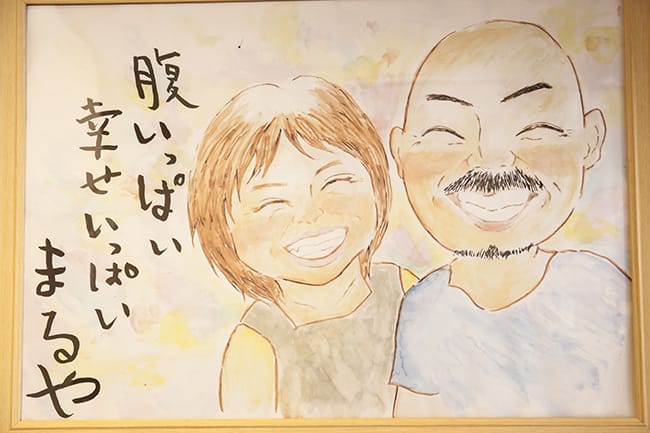 腹いっぱい
幸せいっぱい
まるや